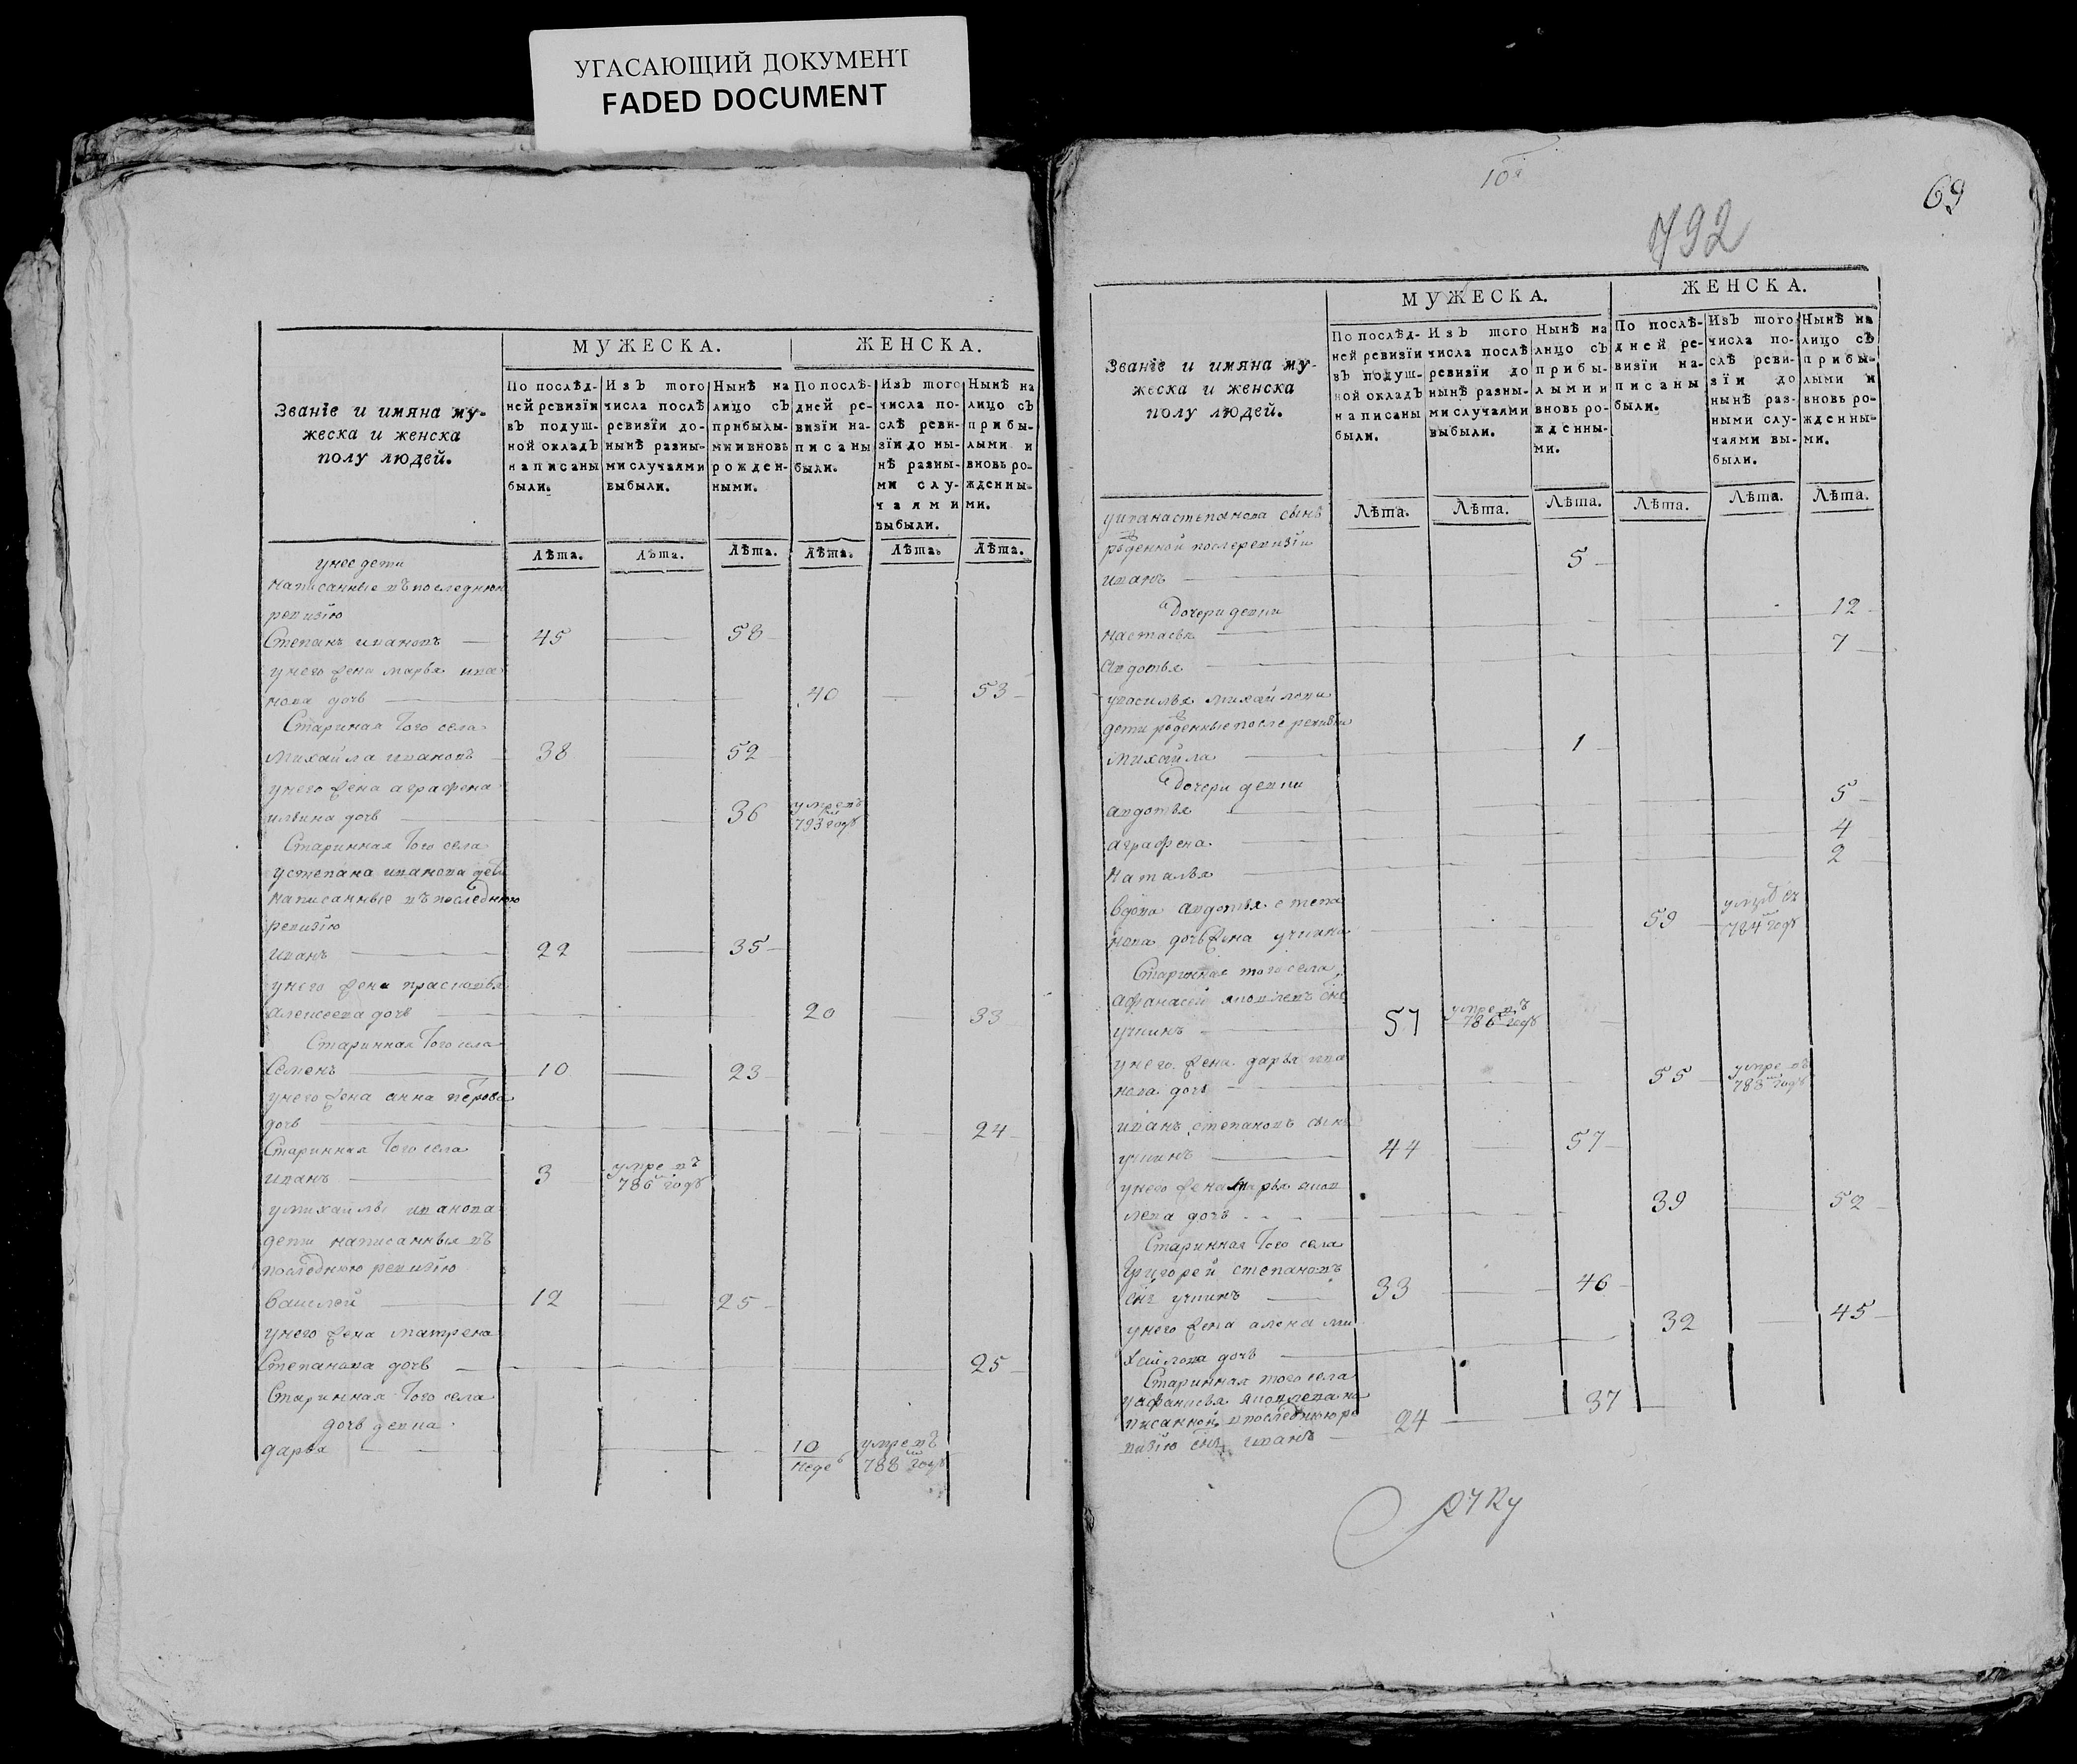 УГАСАЮЩИЙ ДОКУМЕНТ
FADED DOCUMENT
Званїе и имяна му-
жеска и женска
полу людей.
МУЖЕСКА.
ЖЕНСКА.
По послѣд-
ней ревизїи
въ подуш-
ной окладъ
написаны
были.
Изъ того
числа послѣ
ревизїи до-
нынѣ разны-
ми случаями
выбыли.
Нынѣ на
лицо съ
прибылы-
ми и вновь
рожден-
ными.
По послѣ-
дней ре-
визїи на-
писаны
были.
Изъ того
числа по-
слѣ реви-
зїи до ны-
нѣ разны-
ми слу-
чаями
выбыли.
Нынѣ на
лицо съ
прибы-
лыми и
вновь ро-
жденны-
ми.
Лѣта. Лѣта. Лѣта. Лѣта. Лѣта. Лѣта.
у нее дети
написанные въ последнюю
ревизїю
Степанъ ивановъ 45 58
у него жена марья ива
нова дочь 40 53
Старинная того села
михайла ивановъ 38 52
у него жена аграфена
ильина дочь 36 умре въ 793 годѣ
Старинная того села
у степана иванова дети
написанные въ последнюю
ревизїю
иванъ 22 35
у него жена прасковья
алексеева дочь 20 33
Старинная того села
Семенъ 10 23
у него жена анна петрова
дочь 24
Старинная того села
иванъ 3 умре въ 786 годѣ
у михайлы иванова
дети написанныя въ
последнюю ревизїю
василей 12 25
у него жена матрена
Степанова дочь 25
Старинная того села
дочь девка
дарья 10 неде умре въ 788 годѣ
10
69
792
Званїе и имяна му-
жеска и женска
полу людей.
МУЖЕСКА.
ЖЕНСКА.
По послѣд-
ней ревизїи
въ подуш-
ной окладъ
написаны
были.
Изъ того
числа послѣ
ревизїи до
нынѣ разны-
ми случаями
выбыли.
Нынѣ на
лицо съ
прибы-
лыми и
вновь ро-
жденны-
ми.
По послѣ-
дней ре-
визїи на-
писаны
были.
Изъ того
числа по-
слѣ реви-
зїи до
нынѣ раз-
ными слу-
чаями вы-
были.
Нынѣ на
лицо съ
прибы-
лыми и
вновь ро-
жденны-
ми.
Лѣта. Лѣта. Лѣта. Лѣта. Лѣта. Лѣта.
у ивана степанова сынъ
рожденной после ревизїи
иванъ 5
Дочери девки
настасья 12
авдотья 7
у василья михайлова
дети рожденные после ревизїи
михайла 1
Дочери девки
авдотья 5
аграфена 4
наталья 2
вдова авдотья степа
нова дочь жена 59 784 годѣ
Старинная того села
афанасей яковлевъ снъ
57 умре въ 786 годѣ
у него жена дарья ива
нова дочь 55 умре въ 788 годѣ
иванъ степановъ сынъ
44 57
у него жена марья яков
лева дочь 39 52
Старинная того села
Григорей степановъ
снъ 33 46
у него жена алена ми
хайлова дочь 32 45
Старинная того села
у афанасья яковлева на
писанной в последнюю ре
визїю снъ иванъ 24 37
руку